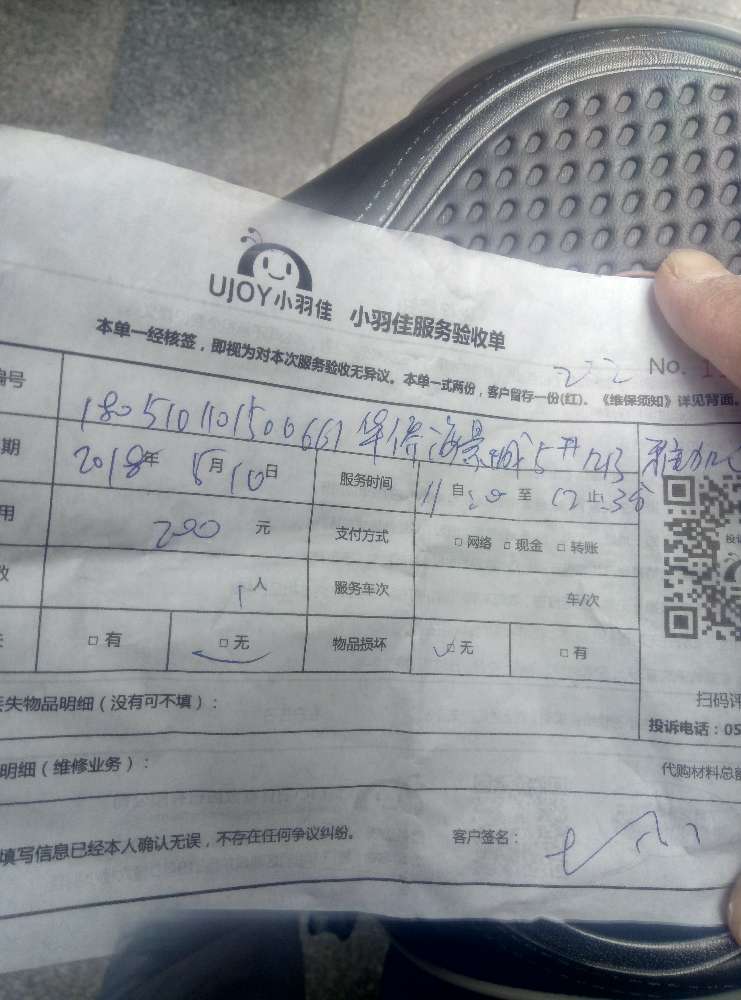 UJOY小羽佳 小羽佳服务验收单
本单一经核签，即视为对本次服务验收无异议。本单一式两份，客户留存一份(红)。《维保须知》详见背面。
No. 1
编号 180510110150066 海景城5#
期 2018年 5月10日 服务时间 11自20至12止35分
用 200 元 支付方式 □网络 □现金 □转账
数 1人 服务车次 车/次
失 □有 □无 物品损坏 □无 □有
丢失物品明细（没有可不填）：
扫码评
投诉电话：05
明细（维修业务）： 代购材料总额
填写信息已经本人确认无误，不存在任何争议纠纷。 客户签名：